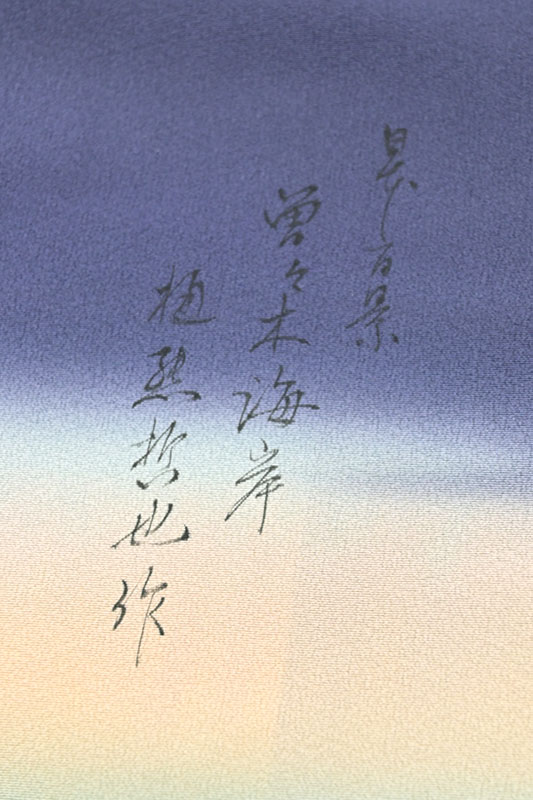 日本百景
曽々木海岸
樋熊哲也作